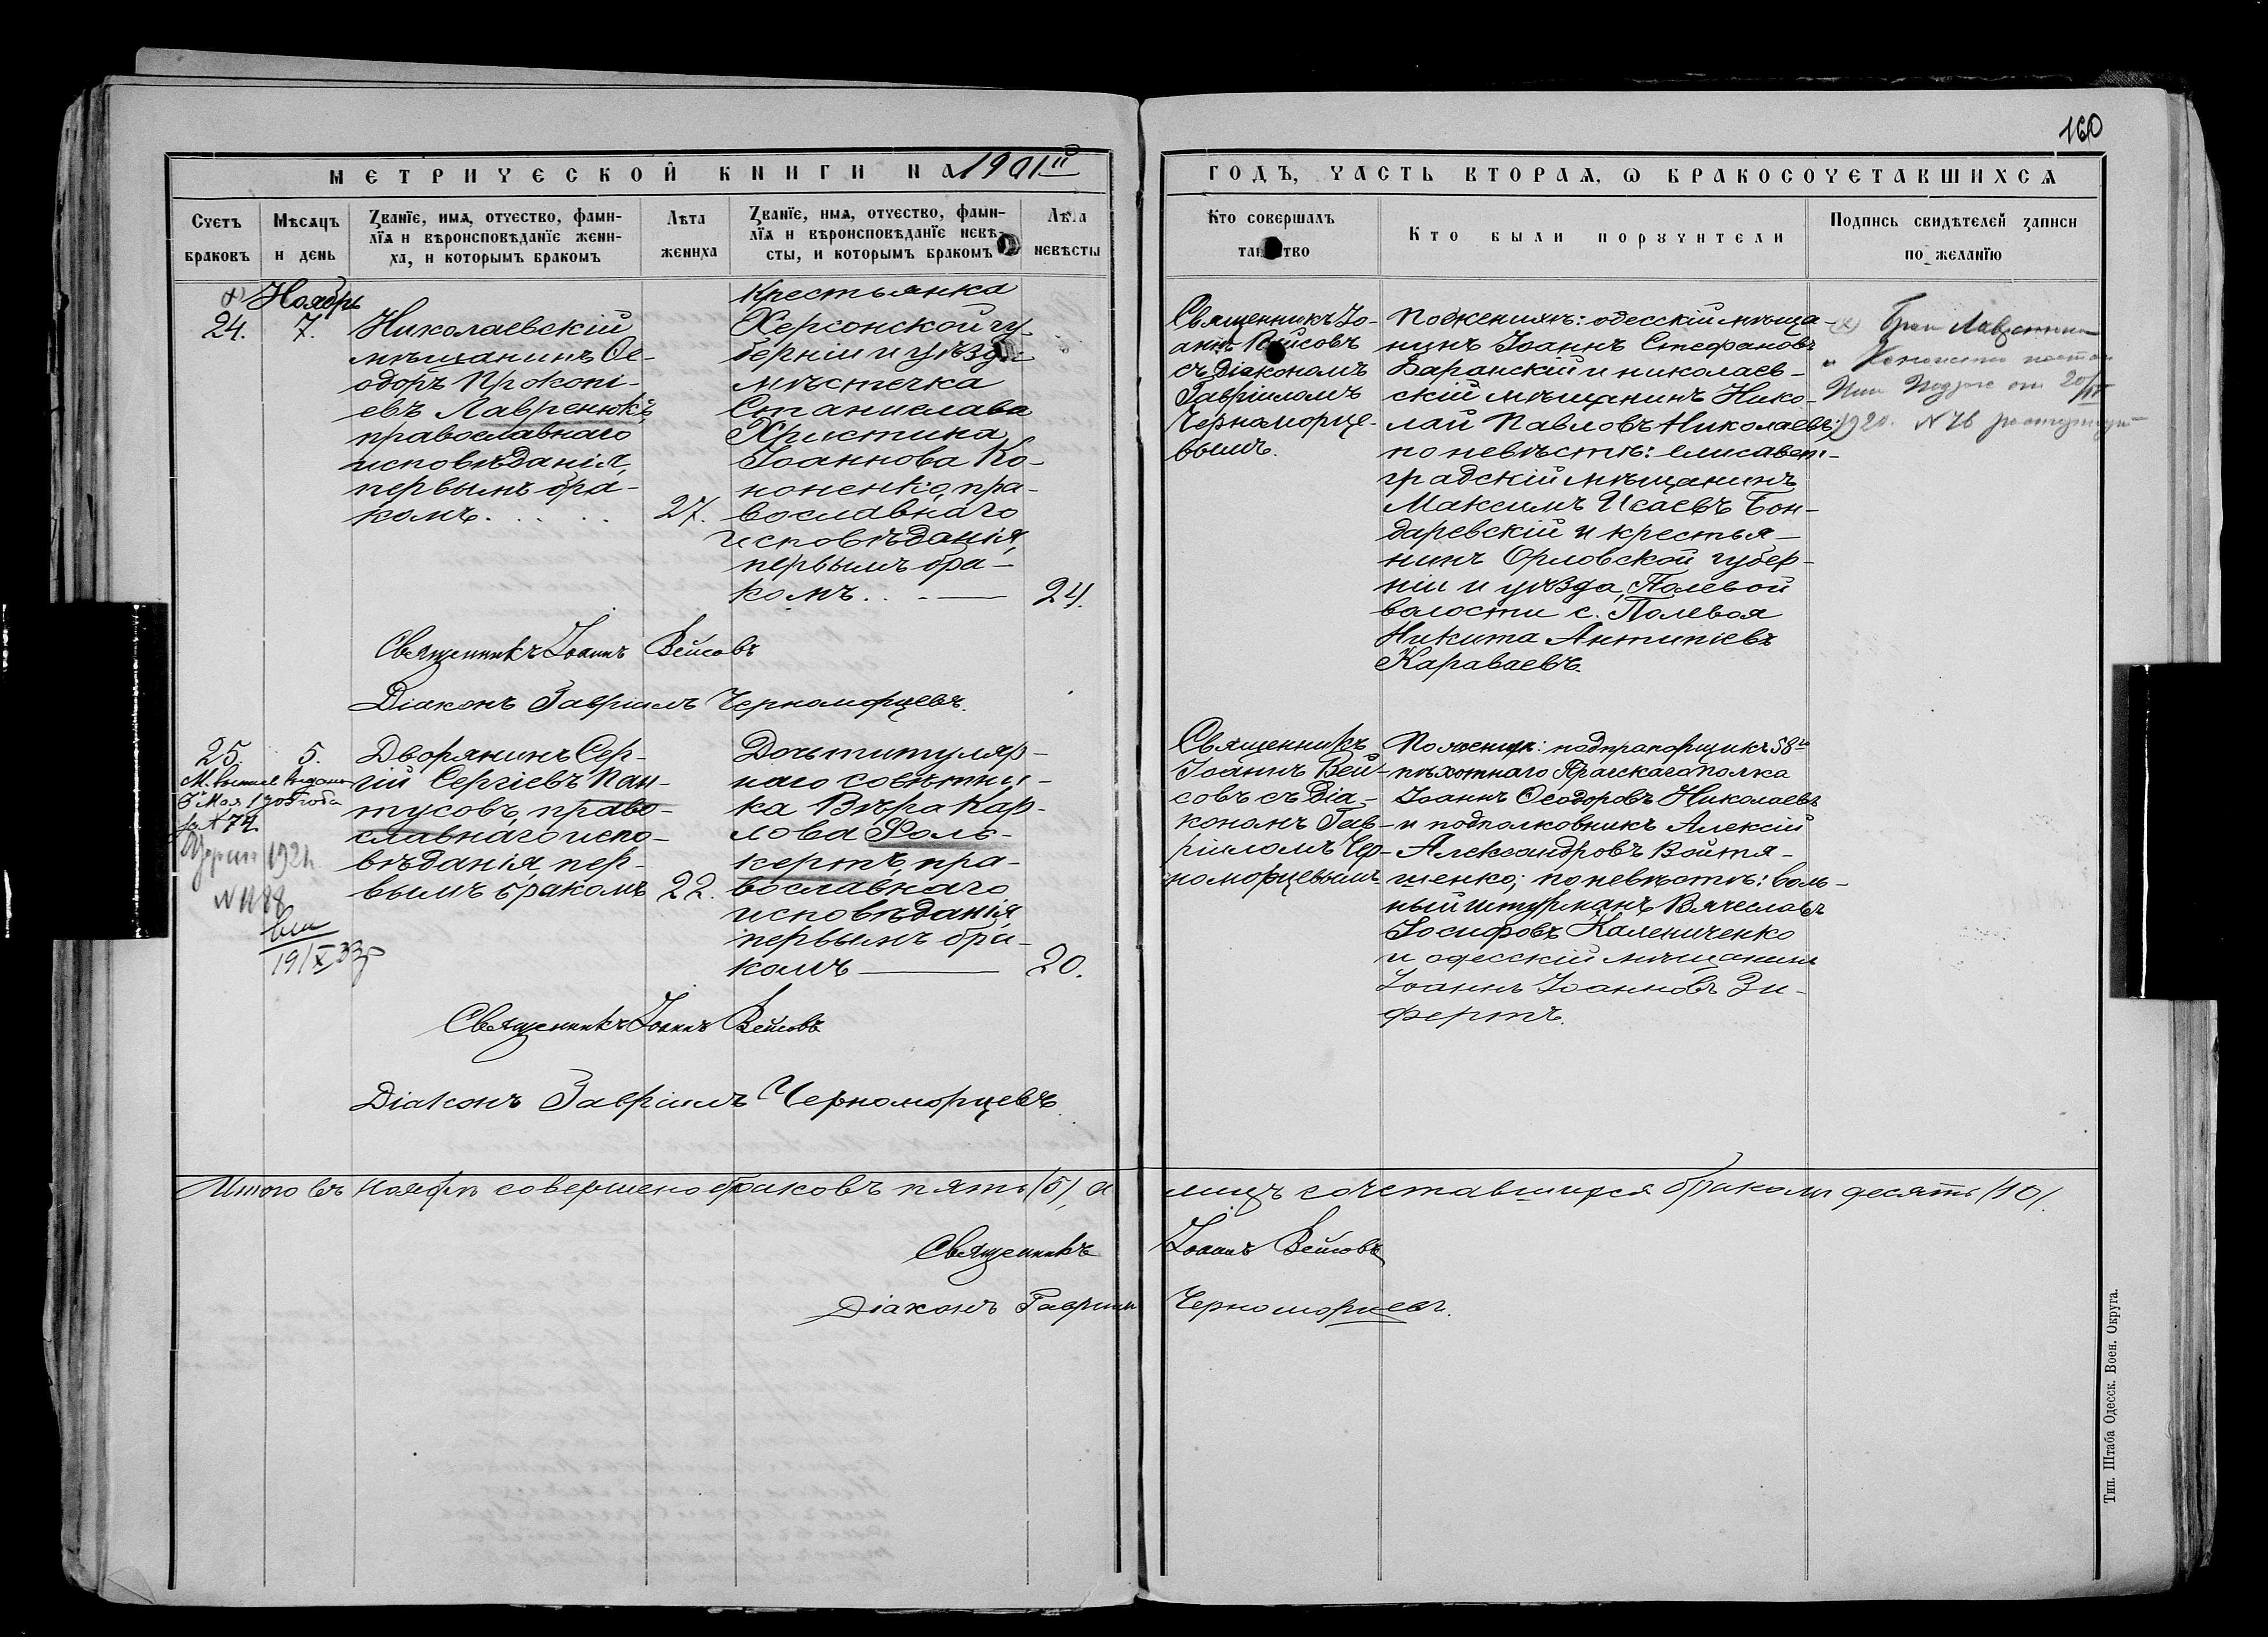 160
МЕТРИЧЕСКОЙ КНИГИ НА 1901й
ГОДЪ, ЧАСТЬ ВТОРАЯ, Ѡ БРАКОСОЧЕТАВШИХСЯ
Счетъ
браковъ
Мѣсяцъ
и день
Званїе, имя, отчество, фами-
лїя и вѣроисповѣданїе жени-
ха, и которымъ бракомъ
Лѣта
жениха
Званїе, имя, отчество, фами-
лїя и вѣроисповѣданїе невѣ-
сты, и которымъ бракомъ
Лѣта
невѣсты
Кто совершалъ
таинство
Кто были поручители
Подпись свидѣтелей записи
по желанїю
Ноябрь
24.
7.
Николаевскій
мѣщанинъ Ѳе-
одоръ Прокопі-
евъ Лавренюкъ,
православнаго
исповѣданія,
первымъ бра-
комъ.
27.
Крестьянка
Херсонской гу-
берніи и уѣзда
мѣстечка
Станислава
Христина
Іоаннова Ко-
ноненко, пра-
вославнаго
исповѣданія,
первымъ бра-
комъ.
24.
Священникъ Іо-
аннъ Вейсовъ
съ Діакономъ
Гавріиломъ
Черноморце-
вымъ.
По женихѣ: одесскій мѣща-
нинъ Іоаннъ Стефановъ
Баранскій и николаев-
скій мѣщанинъ Нико-
лай Павловъ Николаевъ;
по невѣстѣ: елисавет-
градскій мѣщанинъ
Максимъ Исаевъ Бон-
даревскій и крестья-
нинъ Орловской губер-
ніи и уѣзда, Полевой
волости с. Полевоя
Никита Антипіевъ
Караваевъ.
(х) Брак
1920. N 76
Священникъ Іоаннъ Вейсовъ
Діаконъ Гавріилъ Черноморцевъ.
25.
5.
М.
3го Мая
за N 74.
192
N 1188
19/X 33г
Дворянинъ Сер-
гій Сергіевъ Пан-
тусовъ, право-
славнаго испо-
вѣданія, пер-
вымъ бракомъ
22.
Дочь титуляр-
наго совѣтни-
ка Вѣра Кар-
лова Фоль-
кертъ, пра-
вославнаго
исповѣданія,
первымъ бра-
комъ
20.
Священникъ
Іоаннъ Вей-
совъ съ Діа-
кономъ Гав-
ріиломъ Чер-
номорцевымъ.
По женихѣ: подпрапорщикъ 58го
пѣхотнаго Прагскаго полка
Іоаннъ Ѳеодоровъ Николаевъ
и подполковникъ Алексій
Александровъ Войтя-
шенко; по невѣстѣ: воль-
ный штурманъ Вячеславъ
Іосифовъ Калениченко
и одесскій мѣщанинъ
Іоаннъ Іоанновъ Зи-
фертъ.
Священникъ Іоаннъ Вейсовъ
Діаконъ Гавріилъ Черноморцевъ.
Итого въ ноябрѣ совершено браковъ пять (5), а лицъ сочетавшихся бракомъ десять (10).
Священникъ Іоаннъ Вейсовъ
Діаконъ Гавріилъ Черноморцевъ.
Тип. Штаба Одесск. Воен. Округа.